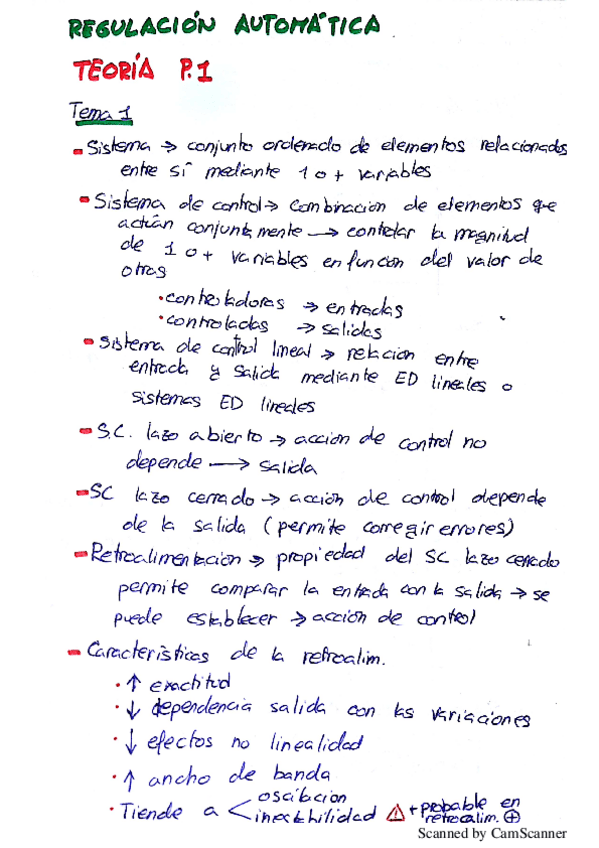 REGULACIÓN AUTOMÁTICA
TEORÍA P.1
Tema 1
- Sistema → conjunto ordenado de elementos relacionados
entre sí mediante 1 o + variables
- Sistema de control → combinación de elementos que
actúan conjuntamente → controlar la magnitud
de 1 o + variables en función del valor de
otras
· controladoras → entradas
· controladas → salidas
- Sistema de control lineal → relación entre
entrada y salida mediante ED lineales o
sistemas ED lineales
- S.C. lazo abierto → acción de control no
depende → salida
- SC lazo cerrado → acción de control depende
de la salida (permite corregir errores)
- Retroalimentación → propiedad del SC lazo cerrado
permite comparar la entrada con la salida → se
puede establecer → acción de control
- Características de la retroalim.
· ↑ exactitud
· ↓ dependencia salida con las variaciones
· ↓ efectos no linealidad
· ↑ ancho de banda
· Tiende a < oscilación
inestabilidad ⚠ + probable en
retroalim. ⊕
Scanned by CamScanner